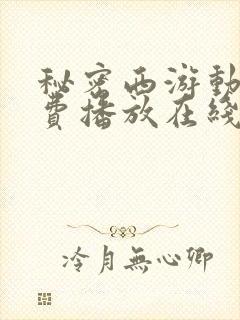 秘密西游動
費播放在綫
冷月無心卿